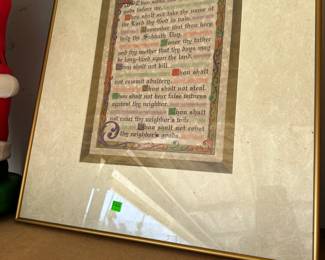 gods before me.
Thou shalt not take the name of
the Lord thy God in vain.
Remember that thou keep
holy thy Sabbath Day.
Honor thy father
and thy mother that thy days may
be long-lived upon the land.
Thou shalt not kill.
Thou shalt
not commit adultery.
Thou shalt not steal.
Thou shalt not bear false witness
against thy neighbor.
Thou shalt
not covet thy neighbor's wife.
Thou shalt not covet
thy neighbor's goods.